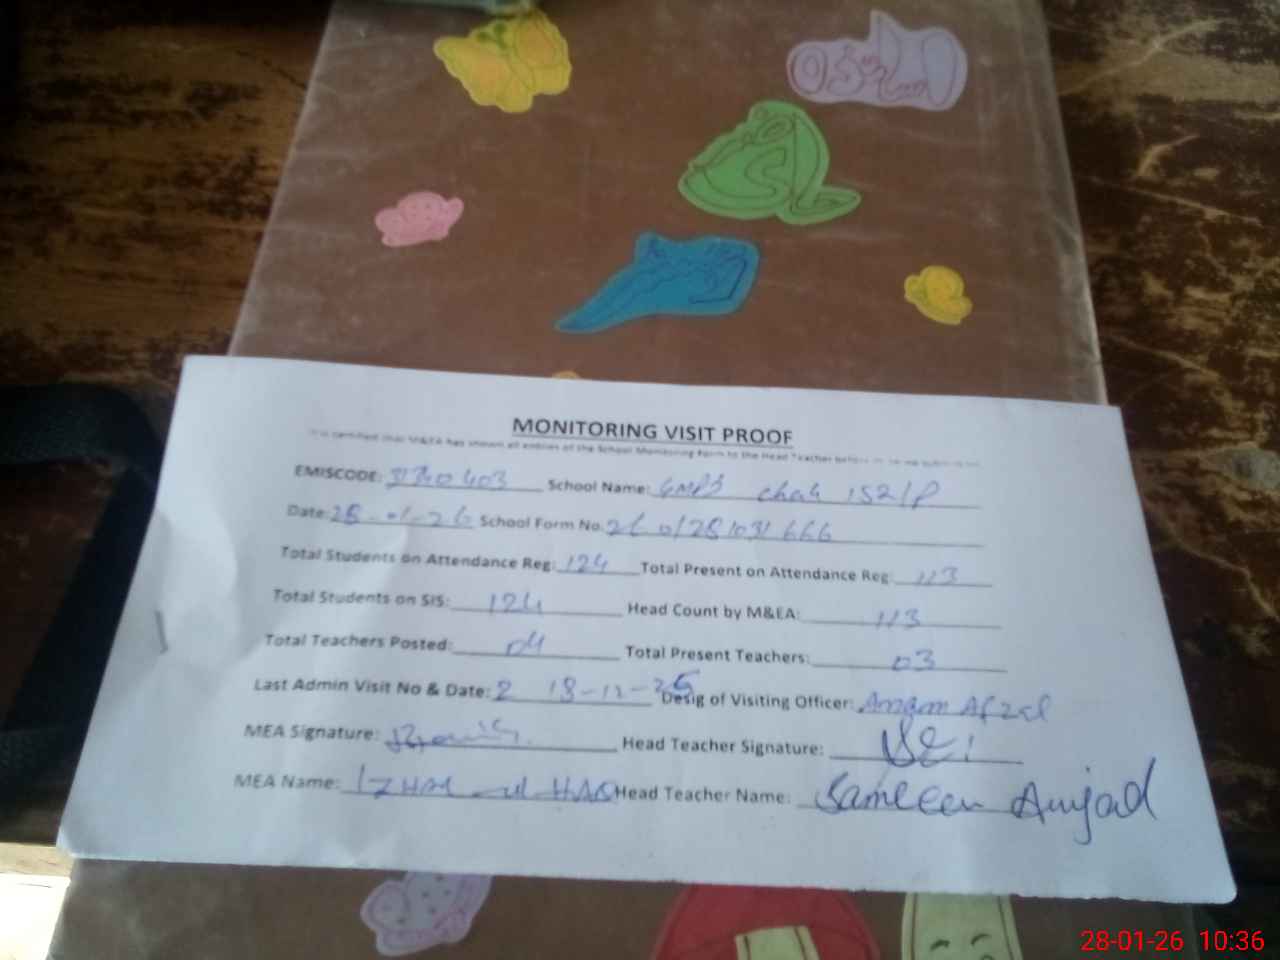 MONITORING VISIT PROOF
It is certified that M&EA has shown all entries of the School Monitoring Form to the Head Teacher before
EMISCODE: 31340403 School Name: GMPS chak 152/P
Date: 28-01-26 School Form No. 26 01281031666
Total Students on Attendance Reg: 124 Total Present on Attendance Reg: 113
Total Students on SIS: 124 Head Count by M&EA: 113
Total Teachers Posted: 04 Total Present Teachers: 03
Last Admin Visit No & Date: 2 18-12-25 Desig of Visiting Officer: Anam Afzal
MEA Signature: Head Teacher Signature:
MEA Name: IZHAR ul HAQ Head Teacher Name: Sameen Amjad
28-01-26 10:36